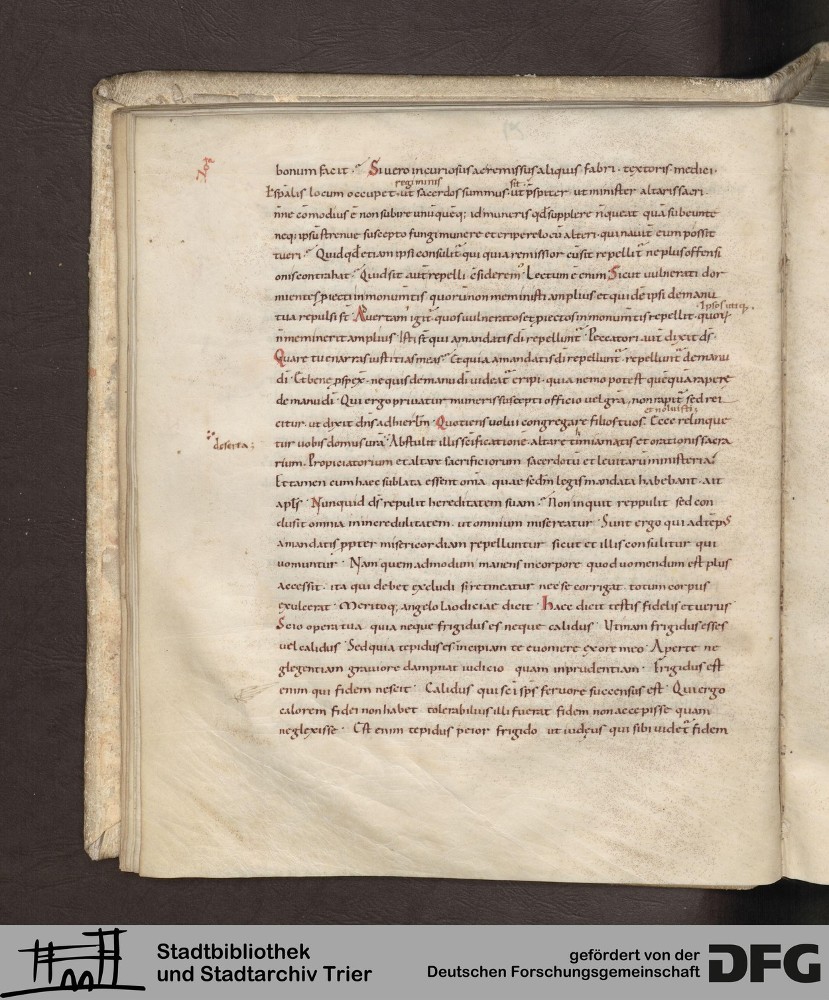 bonum facit · Si vero incuriosus ac remissus aliquis fabri · textoris · medici ·
regiminis sit
locum occupet · ut sacerdos summus · ut pspiter · ut minister altaris sacri ·
nne comodius e non subire unuquēq; id muneris qd supplere nqueat quā subeunte
neq; ipsū strenue suscepto fungi munere et eripere locū alteri · qui navit eum possit
tueri · Quid qd etiam ipsi consulit qui quia remissior cu sit repellit ne plus offensi
onis contrahat · Quid sit aut repelli csiderem · Lectum e enim Sicut vulnerati dor
mientes piecti in monumtis quorū non meministi amplius et quide ipsi de manu
ipsos utiq.
tua repulsi st · Avertam igit quos vulneratos et piectos in monumtis repellit · quorū
n meminerit amplius · Isti st qui a mandatis di repellunt · Peccatori aut dixit ds ·
Quare tu enarras iustitias meas · Et quia a mandatis di repellunt repellunt de manu
di · Et bene pspex · ne quis de manu di videat eripi · quia nemo potest quēquā rapere
de manu di · Qui ergo privatur muneris suscepti officio vel grā, non rapit sed rei
et noluisti;
citur · ut dixit dns ad hierlm · Quotiens volui congregare filios tuos · Ecce relinque
deserta :
tur vobis domus ura · Abstulit illis scificatione · altare timiamatis et orationis sacra
rium · Propiciatorium et altare sacrificiorum sacerdotū et levitarū ministeria ·
Et tamen cum haec sublata essent omīa · quae sedm legis mandata habebant · ait
apls · Nunquid ds repulit hereditatem suam · Non inquit reppulit sed con
clusit omnia in incredulitatem · ut omnium misereatur · Sunt ergo qui ad teps
a mandatis ppter misericordiam repelluntur sicut et illis consulitur qui
vomuntur · Nam quemadmodum manens in corpore quod vomendum est plus
accessit · ita qui debet excludi si retineatur nec se corrigat · totum corpus
exulcerat · Merito q; angelo laodiciae dicit · Haec dicit testis fidelis et verus
Scio opera tua quia neque frigidus es neque calidus · Utinam frigidus esses
vel calidus · Sed quia tepidus es incipiam te evomere ex ore meo · Aperte ne
glegentiam graviore dampnat iudicio quam inprudentiam · Frigidus est
enim qui fidem nescit · Calidus qui sci sps fervore succensus est · Qui ergo
calorem fidei non habet tolerabilius illi fuerat fidem non accepisse quam
neglexisse · Est enim tepidus peior frigido ut iudęus qui sibi videt fidem
Stadtbibliothek
und Stadtarchiv Trier
gefördert von der
Deutschen Forschungsgemeinschaft
DFG